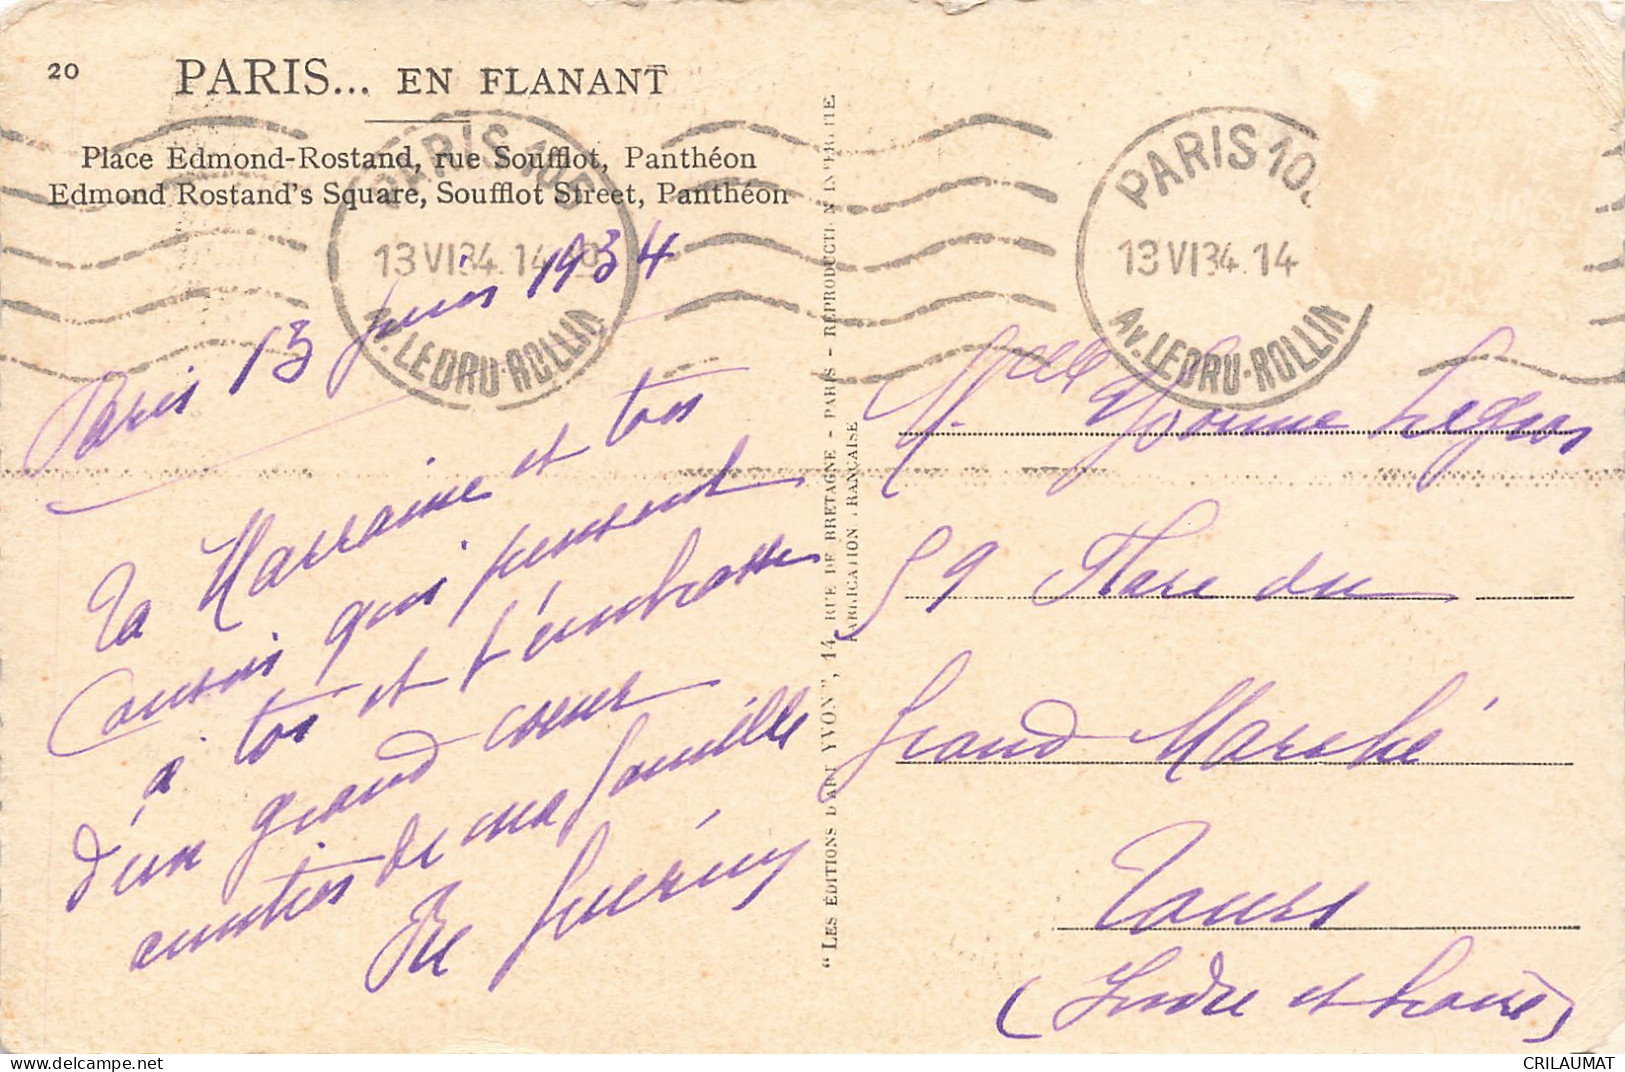 20
PARIS... EN FLANANT
Place Edmond-Rostand, rue Soufflot, Panthéon
Edmond Rostand's Square, Soufflot Street, Panthéon
PARIS 105
13 VI 34. 14
AV. LEDRU-ROLLIN
PARIS 10
13 VI 34. 14
AV. LEDRU-ROLLIN
Paris 13 Juin 1934
Ta Marraine et tes
Cousins qui pensent
à toi et t'embrasse
d'un grand coeur
amitiés de ma famille
Guérin
"LES ÉDITIONS D'ART YVON", 14 RUE DE BRETAGNE - PARIS - REPRODUCTION INTERDITE
FABRICATION FRANÇAISE
Melle Yvonne Legros
59 Place du
Grand Marché
Tours
(Indre et Loire)
delcampe.net
CRILAUMAT